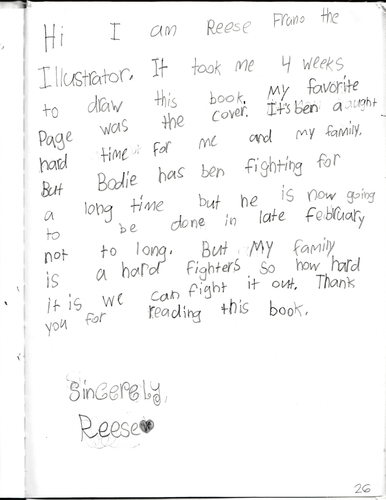 Hi I am Reese Frano the
Illustrator. It took me 4 weeks
to draw this book. My favorite
Page was the cover. It's ben a
hard time for me and my family.
But Bodie has ben fighting for
a long time but he is now going
to be done in late february
not to long. But My family
is a hard fighters so how hard
it is we can fight it out. Thank
you for reading this book.
Sincerely,
Reese
26